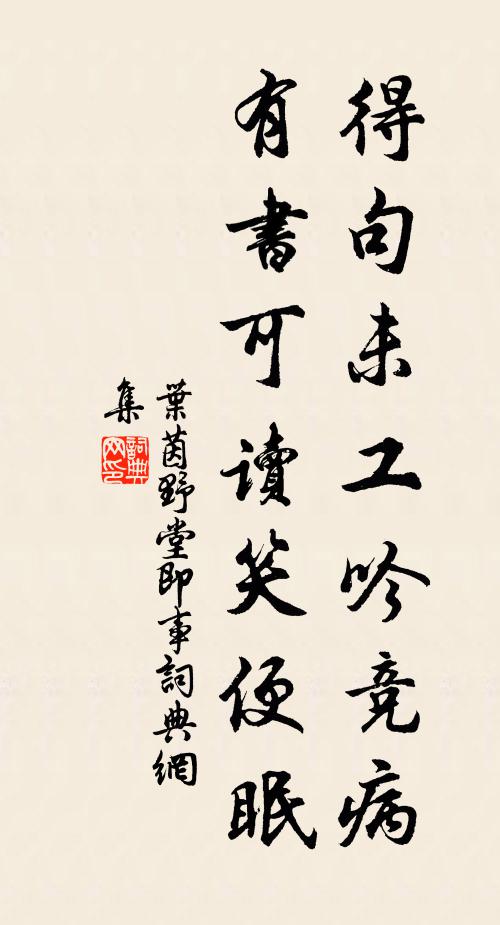 得句未工吟竞病
有書可讀笑便眠
葉茵野堂即事詞典網
集
詞典網印